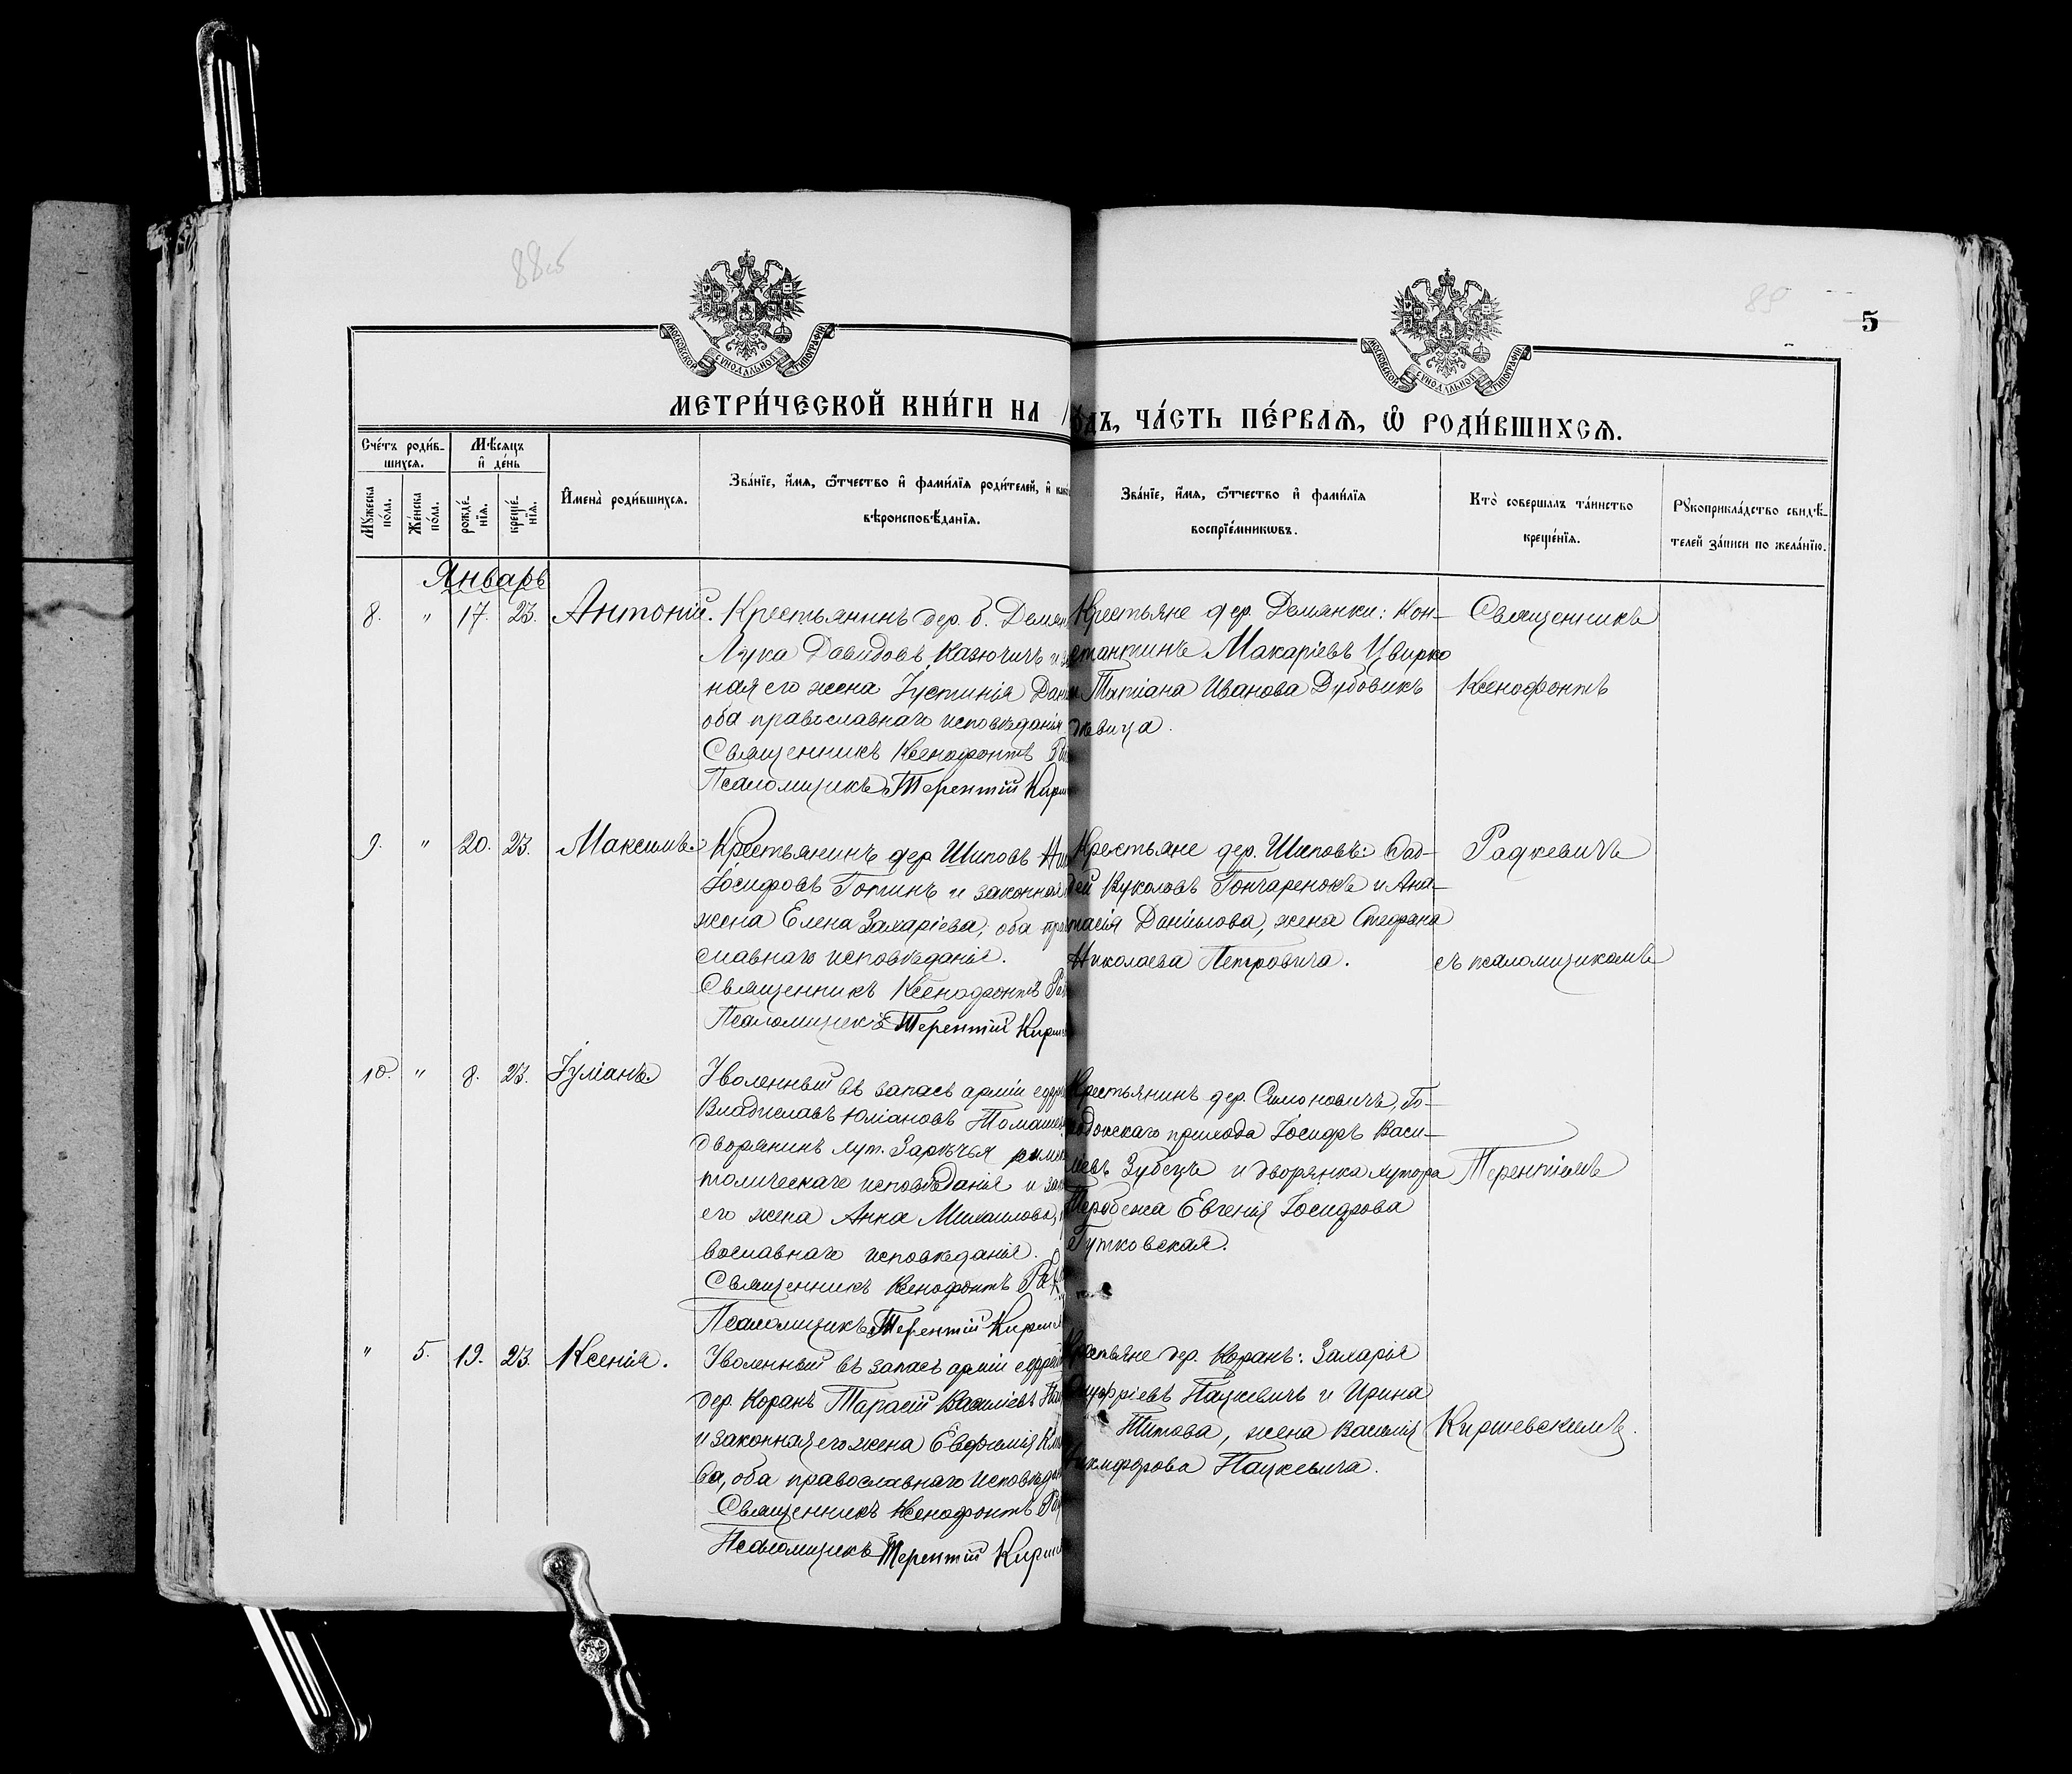 88об
89
5
МОСКОВСКОЙ СУНОДАЛЬНОЙ ТИПОГРАФІИ
МОСКОВСКОЙ СУНОДАЛЬНОЙ ТИПОГРАФІИ
МЕТРИ́ЧЕСКОЙ КНИ́ГИ НА
ѻдъ, ЧА́СТЬ ПЕ́РВАѦ, Ѽ РОДИ́ВШИХСѦ.
Сче́тъ роди́в-
шихсѧ.
Мѣ́сѧцъ
и҆ де́нь
Мꙋ́жеска
по́ла.
Же́нска
по́ла.
рожде́-
нїѧ.
креще́-
нїѧ.
И҆мена̀ роди́вшихсѧ.
Зва́нїе, и҆́мѧ, ѻ҆́тчество и҆ фами́лїѧ роди́телей, и҆
вѣроисповѣ́данїѧ.
Зва́нїе, и҆́мѧ, ѻ҆́тчество и҆ фами́лїѧ
воспрїе́мникѡвъ.
Кто̀ соверша́лъ та́инство
креще́нїѧ.
Рꙋкоприкла́дство свидѣ́-
телей за́писи по жела́нїю.
Январь
8. " 17. 23. Антоній. Крестьянинъ дер. б. Демян
Лука Давидовъ Казючичъ и за
ная его жена Іустинія Дан
оба православнаго исповѣданія
Священникъ Ксенофонтъ Ра
Псаломщикъ Терентій Кирш
Крестьяне дер. Демянки: Кон-
стантинъ Макаріевъ Цвирко
и Татіана Иванова Дубовикъ
дѣвица.
Священникъ
Ксенофонтъ
9. " 20. 23. Максимъ. Крестьянинъ дер. Шиповъ Ник
Іосифовъ Готинъ и законная
жена Елена Захаріева, оба пра
славнаго исповѣданія.
Священникъ Ксенофонтъ Рад
Псаломщикъ Терентій Кирше
Крестьяне дер. Шиповъ: Фад-
дей Вуколовъ Гончаренокъ и Ана-
стасія Даніилова, жена Стефана
Николаева Петровича.
Радкевичъ
съ псаломщикомъ
10. " 8. 23. Іуліанъ. Уволенный въ запасъ арміи ефре
Владиславъ Юліановъ Томаше
дворянинъ хут. Зарѣчья римск
толическаго исповѣданія и зак
его жена Анна Михаилова, п
вославнаго исповѣданія.
Священникъ Ксенофонтъ Рад
Псаломщикъ Терентій Кирше
Крестьянинъ дер. Симоновичъ, Го-
родокскаго прихода Іосифъ Васи-
ліевъ Зубецъ и дворянка хутора
Теребежа Евгенія Іосифова
Гутковская.
Терентіемъ
" 5. 19. 23. Ксенія. Уволенный въ запасъ арміи ефрей
дер. Коранъ Тарасій Василіевъ Нац
и законная его жена Евфимія Кли
ва, оба православнаго исповѣдан
Священникъ Ксенофонтъ Рад
Псаломщикъ Терентій Кирше
Крестьяне дер. Коранъ: Захарія
Онуфріевъ Нацкевичъ и Ирина
Титова, жена Василія
Никифорова Нацкевича.
Киршевскимъ.